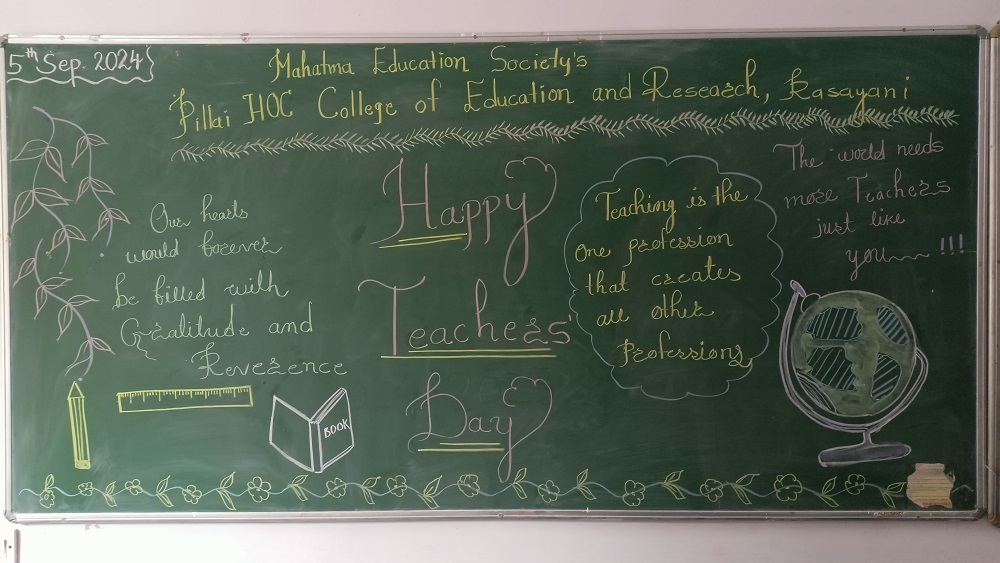 5th Sep. 2024
Mahatma Education Society's
Pillai HOC College of Education and Research, Rasayani
Our hearts
would forever
be filled with
Gratitude and
Reverence
Happy
Teachers'
Day
Teaching is the
One profession
that creates
all other
Professions
The world needs
more Teachers
just like
you !!!
BOOK